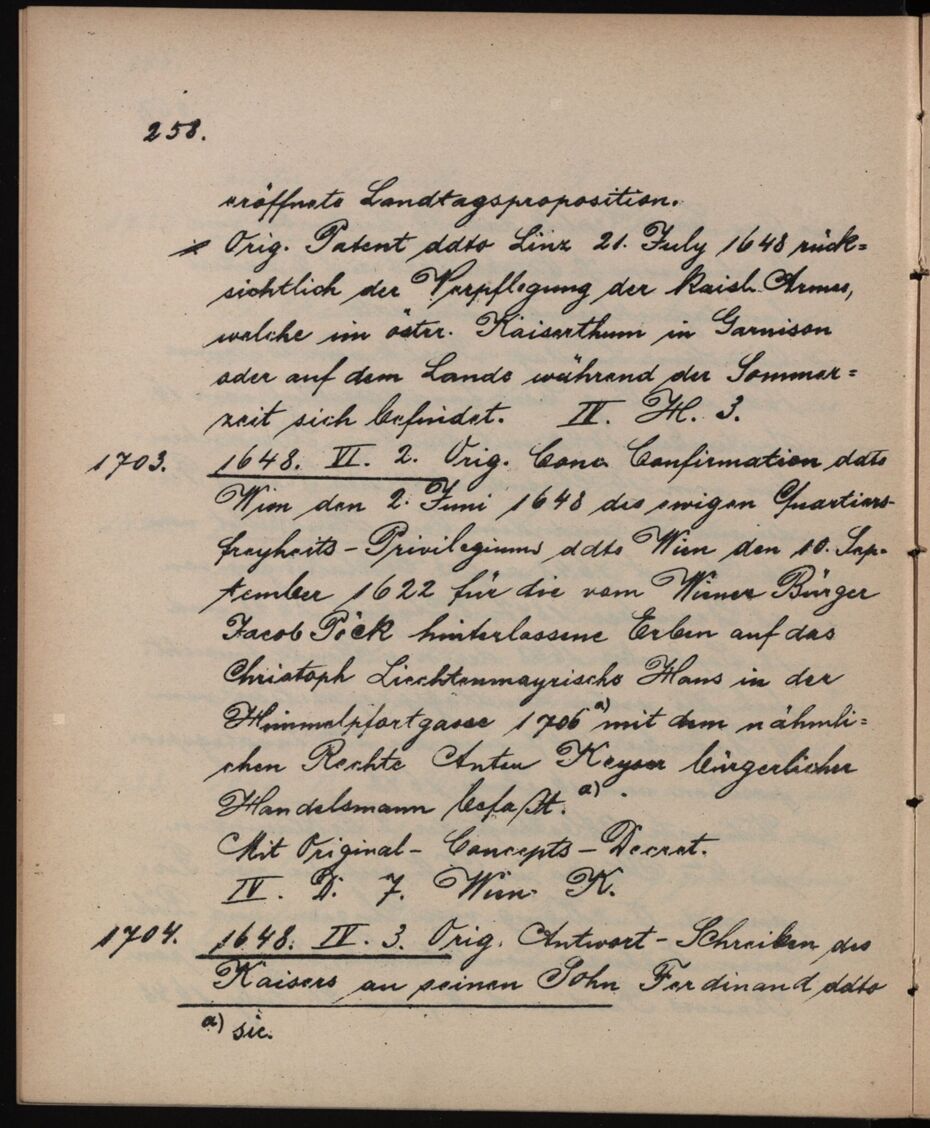 258.
eröffnete Landtagsproposition.
Orig. Patent ddto Linz 21. July 1648 rück=
sichtlich der Verpflegung der kaisl. Armee,
welche im öster. Kaiserthum in Garnison
oder auf dem Lande während der Sommer=
zeit sich befindet. IV. H. 3.
1703. 1648. VI. 2. Orig. Conc. Confirmation ddto
Wien den 2. Juni 1648 des ewigen Quartiers-
freyheits-Privilegiums ddto Wien den 10. Sep-
tember 1622 für die vom Wiener Bürger
Jacob Pöck hinterlassene Erben auf das
Christoph Liechtenmayrische Haus in der
Himmelpfortgasse 1706 a) mit dem nähmli=
chen Rechte Anton Keyser bürgerlicher
Handelsmann befaßt. a)
Mit Original-Concepts-Decret.
IV. D. 7. Wien K.
1704. 1648. IV. 3. Orig. Antwort-Schreiben des
Kaisers an seinen Sohn Ferdinand ddto
a) sic.